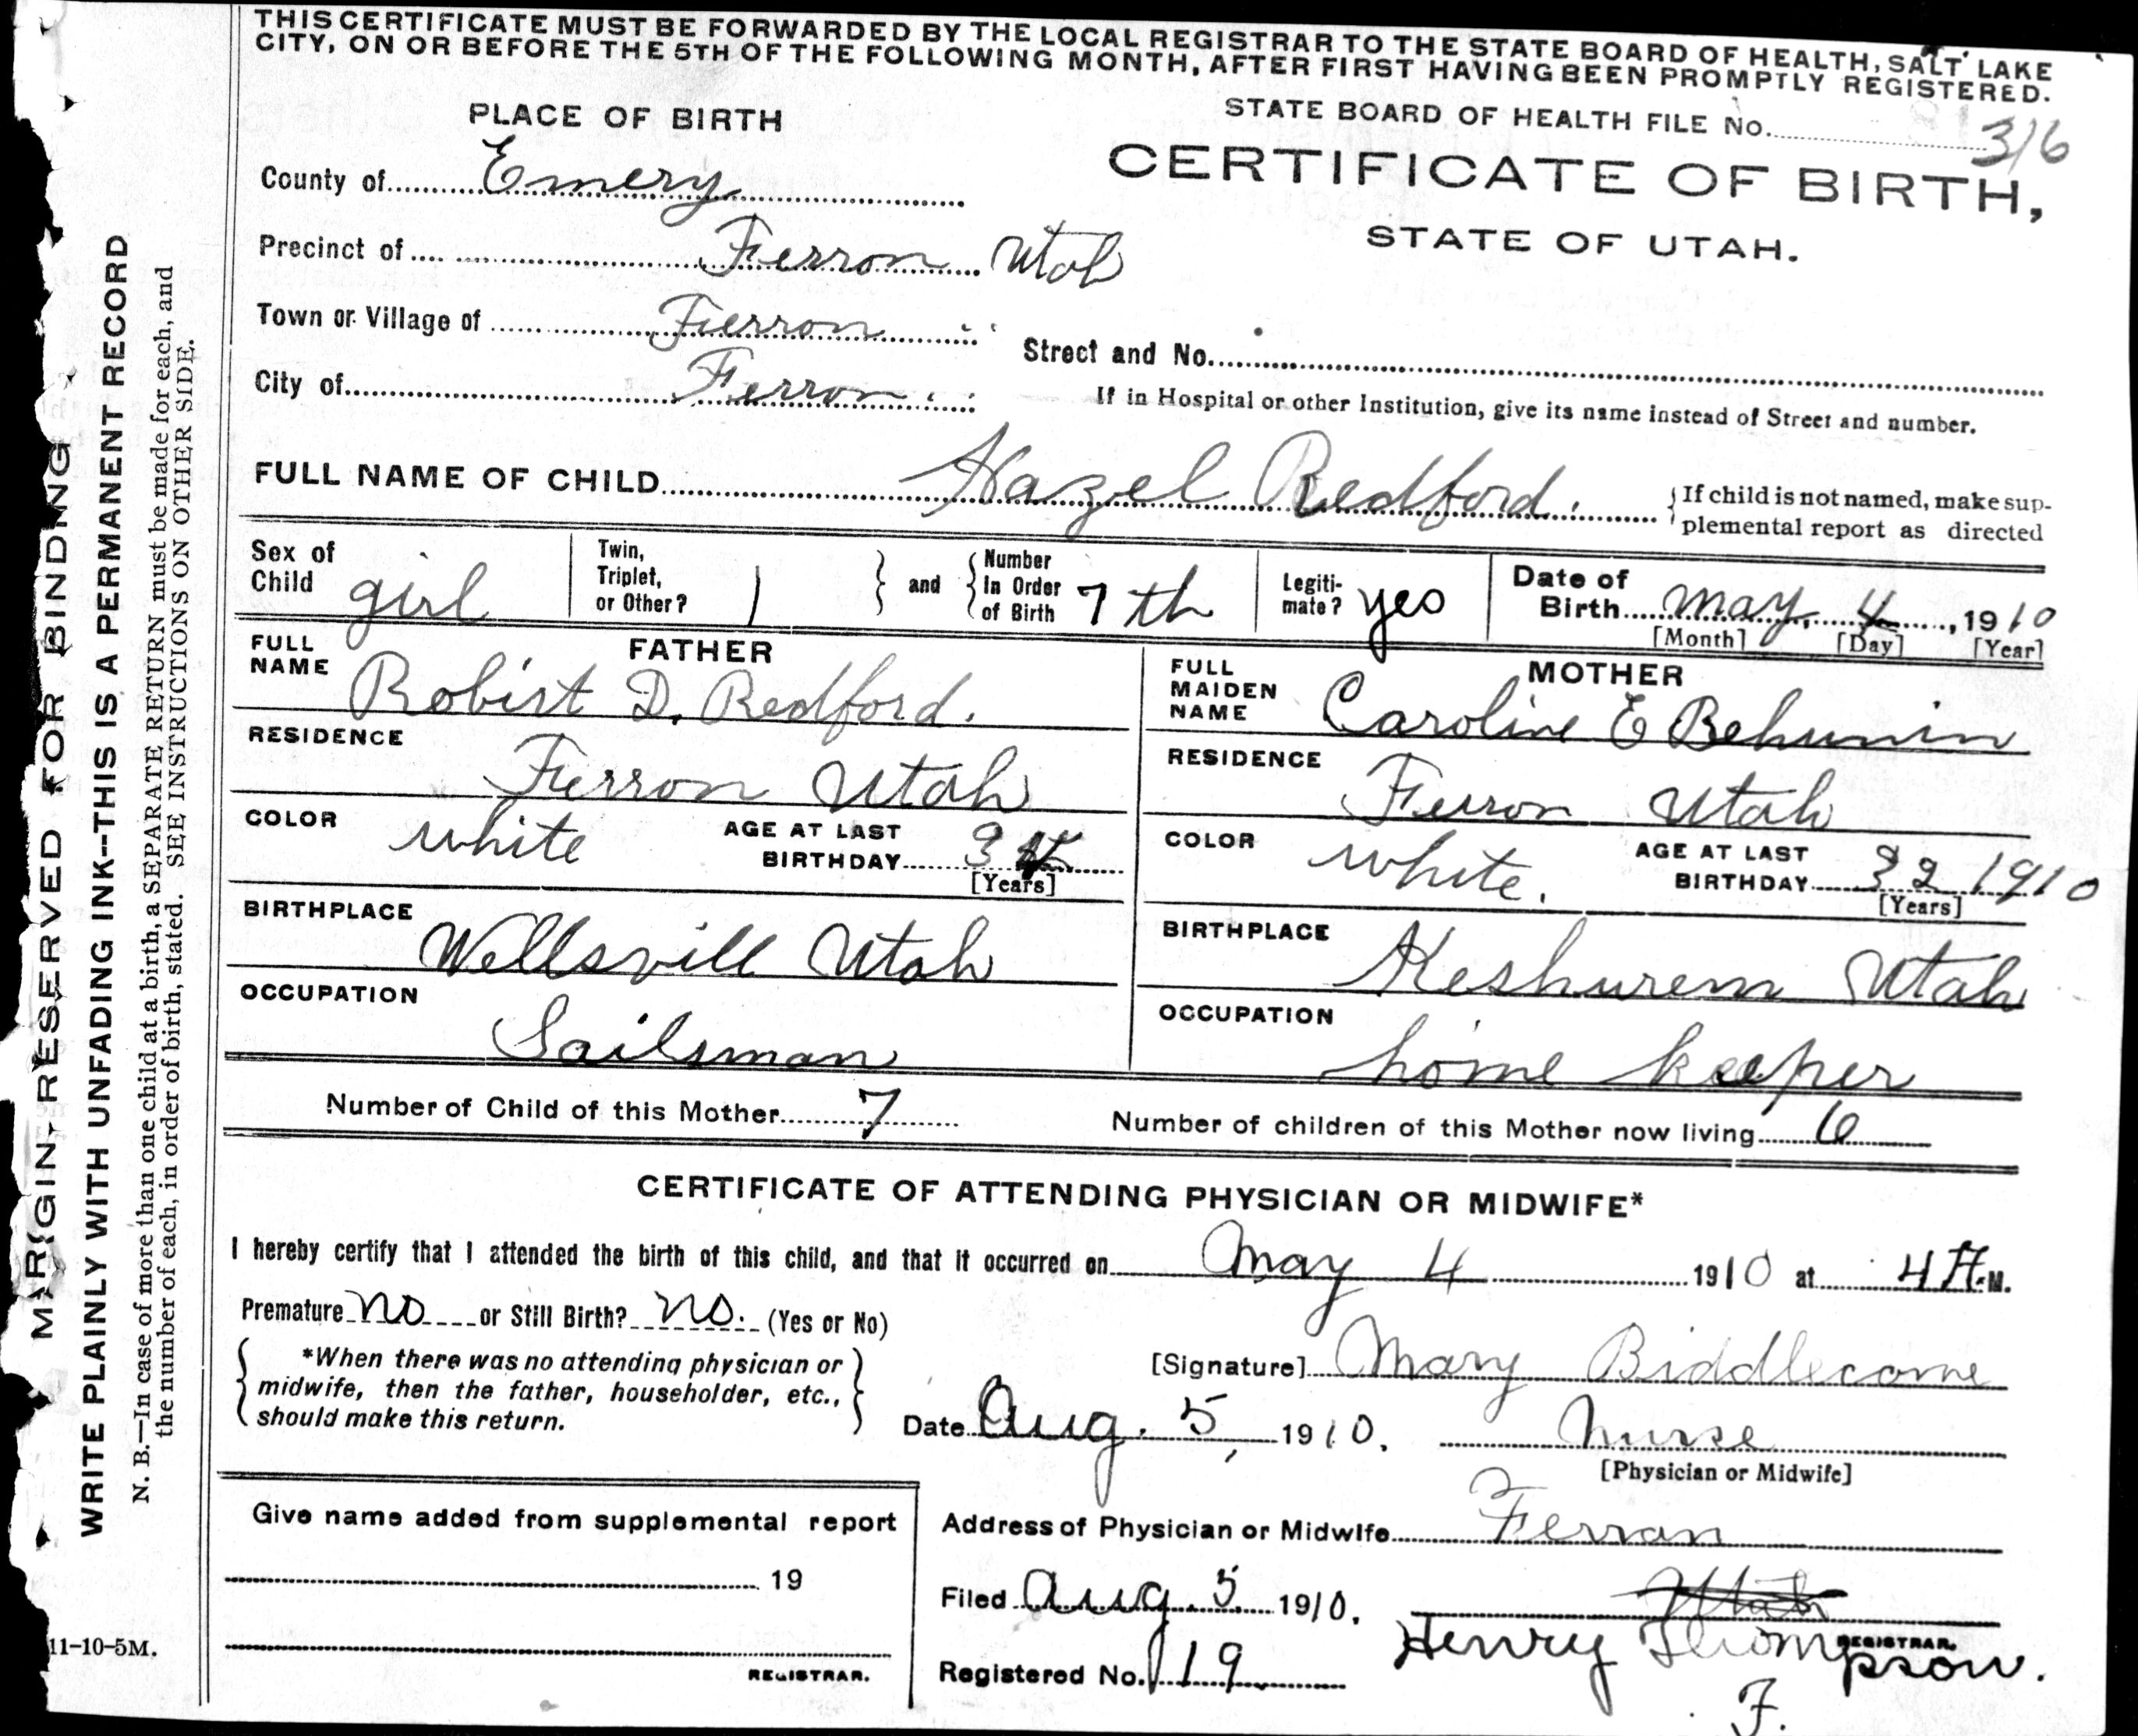 THIS CERTIFICATE MUST BE FORWARDED BY THE LOCAL REGISTRAR TO THE STATE BOARD OF HEALTH, SALT LAKE
CITY, ON OR BEFORE THE 5TH OF THE FOLLOWING MONTH, AFTER FIRST HAVING BEEN PROMPTLY REGISTERED.
PLACE OF BIRTH
STATE BOARD OF HEALTH FILE No. 316
CERTIFICATE OF BIRTH,
STATE OF UTAH.
County of Emery
Precinct of Ferron Utah
Town or Village of Ferron
Street and No.
City of Ferron
If in Hospital or other Institution, give its name instead of Street and number.
FULL NAME OF CHILD Hazel Redford.
If child is not named, make sup-
plemental report as directed
Sex of Child girl
Twin, Triplet, or Other? 1
and Number In Order of Birth 7th
Legiti-mate? yes
Date of Birth May 4, 1910
[Month] [Day] [Year]
FATHER
FULL NAME Robirt D. Redford.
RESIDENCE Ferron Utah
COLOR white AGE AT LAST BIRTHDAY
[Years]
BIRTHPLACE Wellsvill Utah
OCCUPATION Sailsman
MOTHER
FULL MAIDEN NAME Caroline E Behunin
RESIDENCE Ferron Utah
COLOR white. AGE AT LAST BIRTHDAY 32 1910
[Years]
BIRTHPLACE Keshurem Utah
OCCUPATION home keeper
Number of Child of this Mother 7 Number of children of this Mother now living 6
CERTIFICATE OF ATTENDING PHYSICIAN OR MIDWIFE*
I hereby certify that I attended the birth of this child, and that it occurred on May 4 1910 at 4 A.M.
Premature no or Still Birth? no. (Yes or No)
*When there was no attending physician or
midwife, then the father, householder, etc.,
should make this return.
[Signature] Mary Biddlecome
Date Aug. 5, 1910. Nurse
[Physician or Midwife]
Give name added from supplemental report
19
REGISTRAR.
Address of Physician or Midwife Ferran
Utah
Filed Aug. 5 1910.
Henry Thompson.
REGISTRAR.
Registered No. 119
F.
MARGIN RESERVED FOR BINDING
WRITE PLAINLY WITH UNFADING INK--THIS IS A PERMANENT RECORD
N. B.—In case of more than one child at a birth, a SEPARATE RETURN must be made for each, and
the number of each, in order of birth, stated. SEE INSTRUCTIONS ON OTHER SIDE.
11-10-5M.